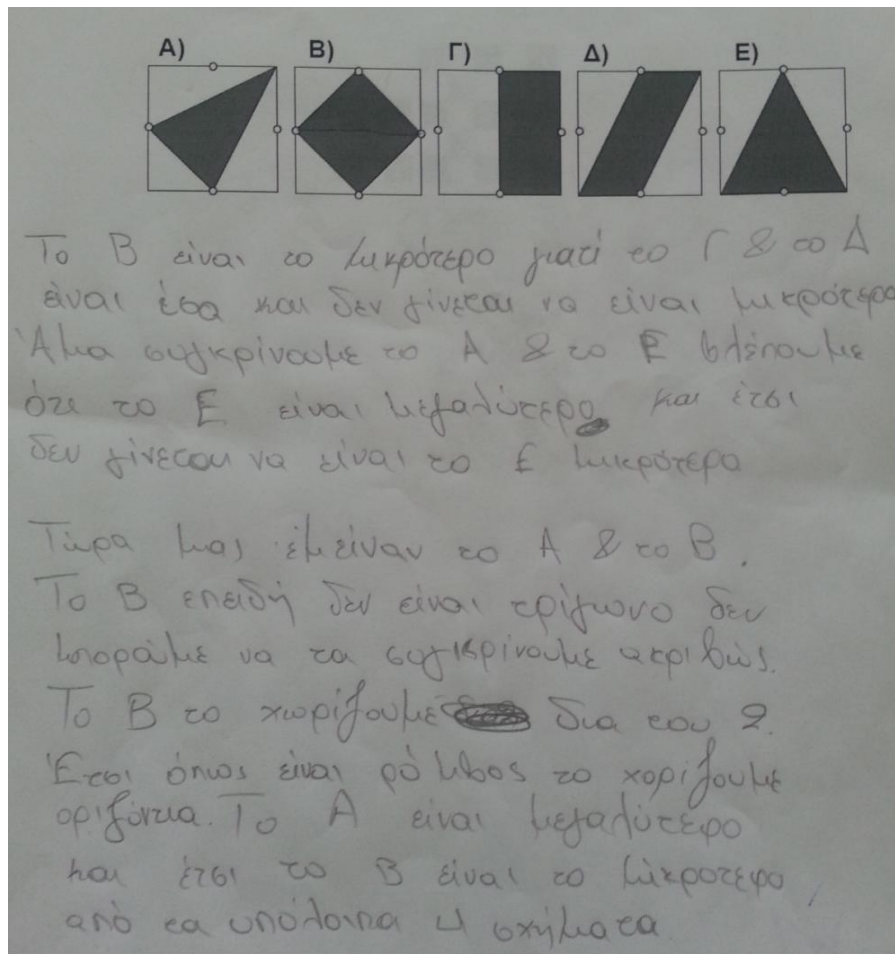 Α) Β) Γ) Δ) Ε)
Το Β είναι το μικρότερο γιατί το Γ & το Δ
είναι ίσα και δεν γίνεται να είναι μικρότερα
Άμα συγκρίνουμε το Α & το Ε βλέπουμε
ότι το Ε είναι μεγαλύτερο και έτσι
δεν γίνεται να είναι το Ε μικρότερο
Τώρα μας έμειναν το Α & το Β.
Το Β επειδή δεν είναι τρίγωνο δεν
μποράμε να τα συγκρίνουμε ακριβώς.
Το Β το χωρίζουμε δια του 2.
Έτσι όπως είναι ρόμβος το χορίζουμε
οριζόντια. Το Α είναι μεγαλύτερο
και έτσι το Β είναι το μικρότερο
από τα υπόλοιπα 4 σχήματα